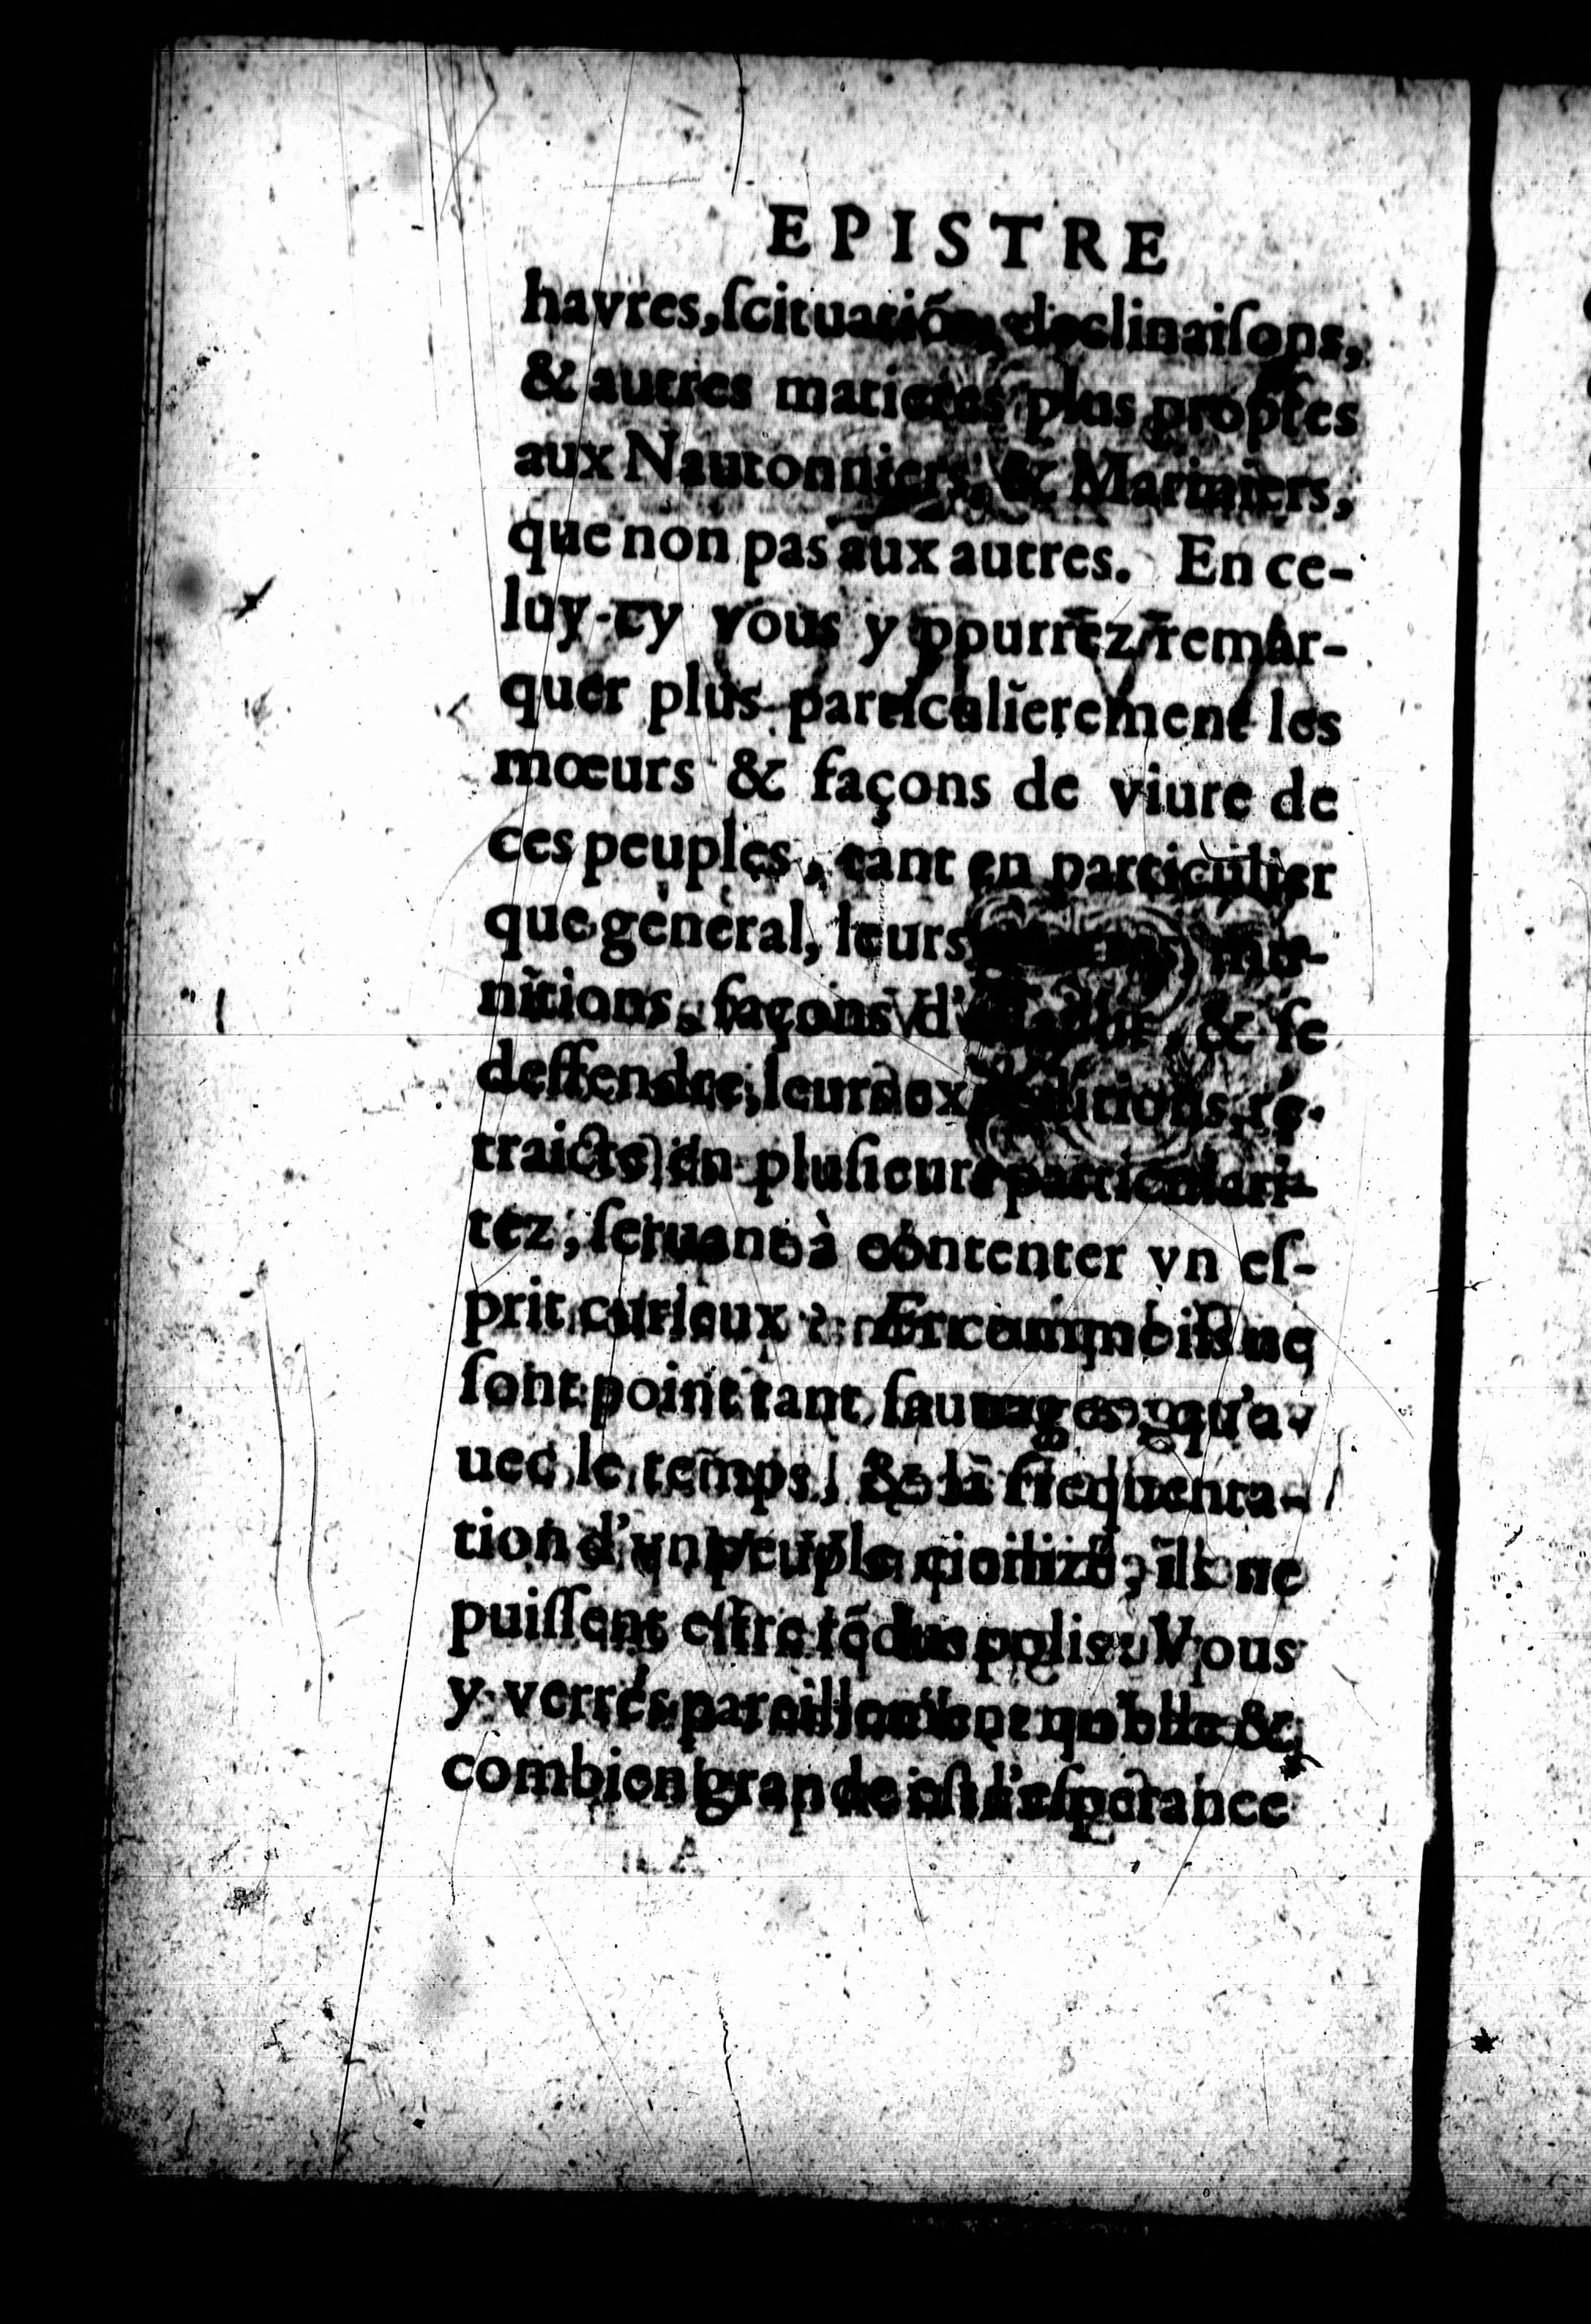 EPISTRE
havres, ſcituatiõs, declinaiſons,
& autres matieres plus propres
aux Nautonniers, & Mariniers,
que non pas aux autres. En ce-
luy-cy vous y pourrez remar-
quer plus particulierement les
mœurs & façons de viure de
ces peuples, tant en particulier
que general, leurs mu-
nitions, façons d' & ſe
deffendre, leurs re-
traicte, en plusieurs particulari-
tez, ſeruant à contenter vn eſ-
prit curieux: Et comme ils ne
ſont point tant ſauuages, qu'a-
uec le temps, & la frequenta-
tion d'vn peuple ciuilizé, ils ne
puiſſent eſtre rẽdus polis: Vous
y verrés pareillement quelle &
combien grande eſt l'eſperance